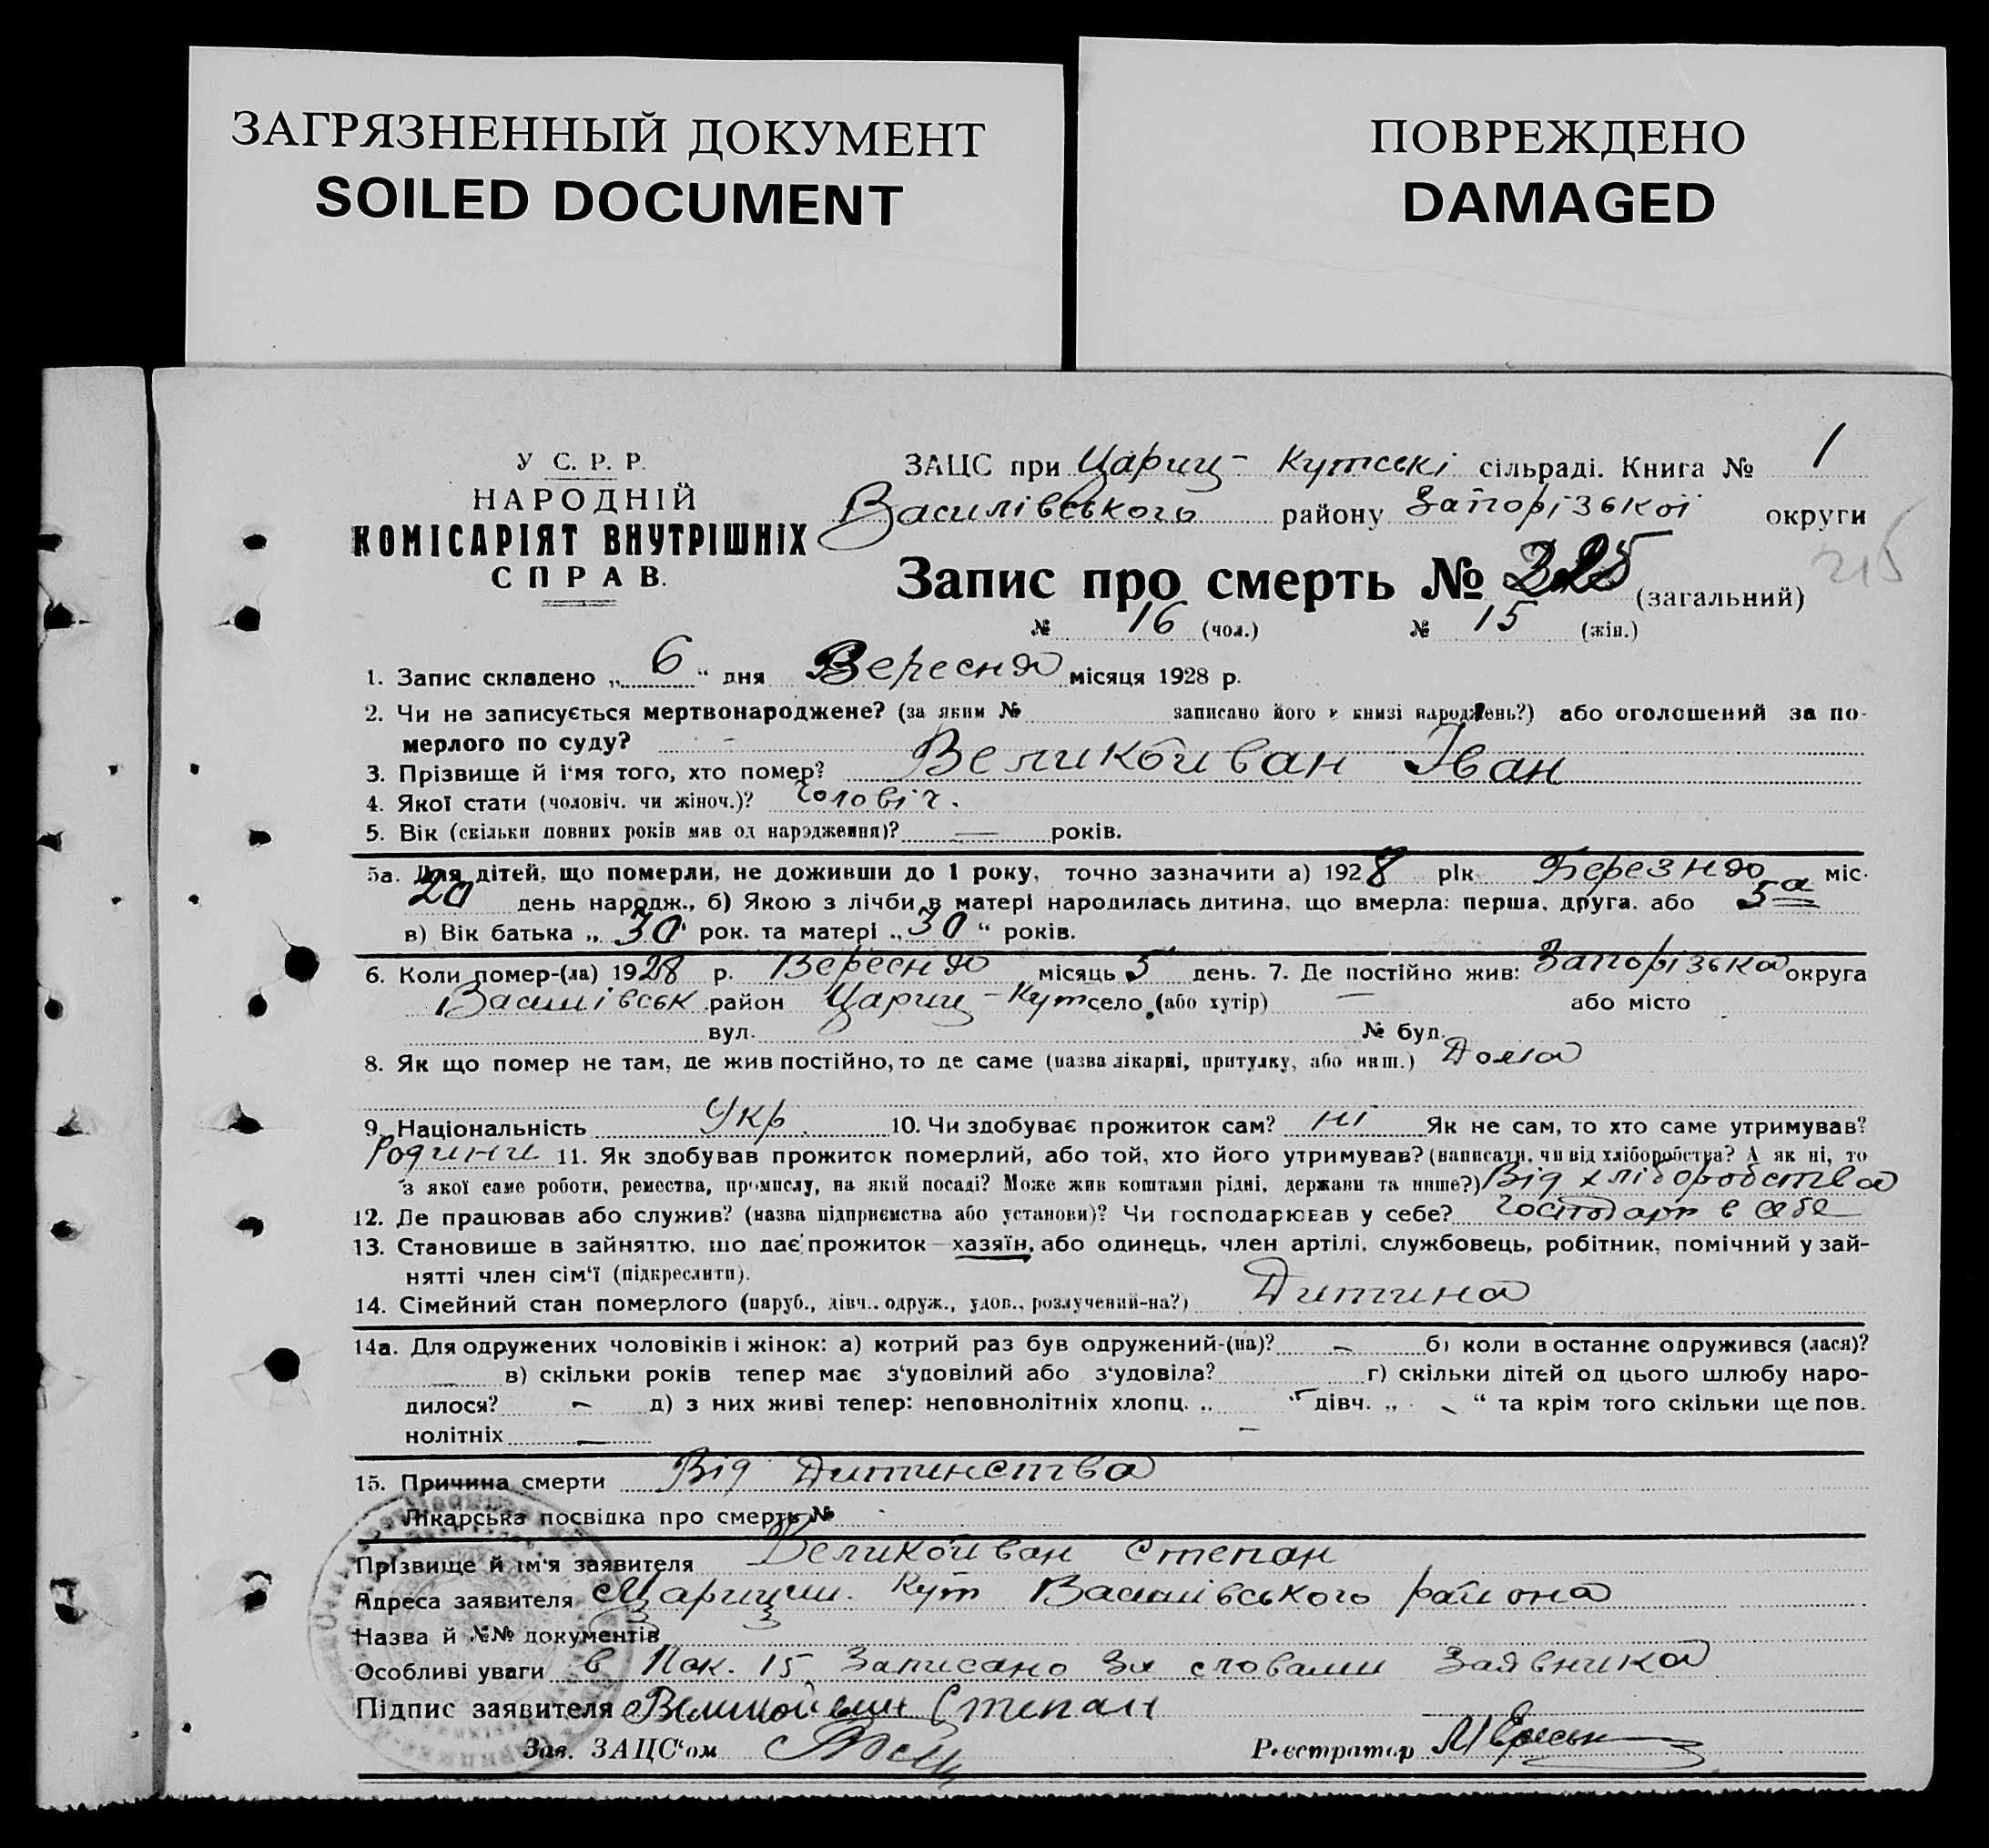 ЗАГРЯЗНЕННЫЙ ДОКУМЕНТ
SOILED DOCUMENT
ПОВРЕЖДЕНО
DAMAGED
У С. Р. Р.
НАРОДНІЙ
КОМІСАРІЯТ ВНУТРІШНІХ
СПРАВ.
ЗАЦС при Цариц- Кутські сільраді. Книга № 1
Василівського району Запорізької округи
Запис про смерть № 325 (загальний) 215
№ 16 (чол.) № 15 (жін.)
1. Запис складено „ 6 “ дня Вересня місяця 1928 р.
2. Чи не записується мертвонароджене? (за яким № записано його в книзі народжень?) або оголошений за по-
мерлого по суду? -
3. Прізвище й і‘мя того, хто помер? Великоиван Іван
4. Якої стати (чоловіч. чи жіноч.)? Чоловіч.
5. Вік (скільки повних років мав од нарэдження)? — років.
5а. Для дітей, що померли, не доживши до 1 року, точно зазначити а) 1928 рік Березня міс.
20 день народж., б) Якою з лічби в матері народилась дитина, що вмерла: перша, друга, або 5-а
в) Вік батька „ 30 “ рок. та матері „ 30 “ років.
6. Коли помер-(ла) 1928 р. Вересня місяць 5 день. 7. Де постійно жив: Запорізька округа
Василівськ район Цариц-Кут село (або хутір) — або місто
вул. № буд.
8. Як що помер не там, де жив постійно, то де саме (назва лікарні, притулку, або инш.) Дома
9. Національність Укр. 10. Чи здобуває прожиток сам? ні Як не сам, то хто саме утримував?
Родини 11. Як здобував прожиток померлий, або той, хто його утримував? (написати, чи від хліборобства? А як ні, то
з якої саме роботи, ремества, промислу, на якій посаді? Може жив коштами рідні, держави та инше?) Від хліборобства
12. Де працював або служив? (назва підприємства або установи)? Чи господарював у себе? Господарт в себе
13. Становище в зайняттю, що дає прожиток—хазяїн, або одинець, член артілі, службовець, робітник, помічний у зай-
нятті член сім‘ї (підкреслити).
14. Сімейний стан померлого (паруб., дівч., одруж., удов., розлучений-на?) Дитина
14а. Для одружених чоловіків і жінок: а) котрий раз був одружений-(на)? - б) коли востаннє одружився (лася)?
— в) скільки років тепер має з‘удовілий або з‘удовіла? г) скільки дітей од цього шлюбу наро-
дилося? - д) з них живі тепер: неповнолітніх хлопц. „ “ дівч. „ - “ та крім того скільки ще пов.
нолітніх — -
15. Причина смерти Від Дитинства
Лікарська посвідка про смерть №
Прізвище й ім‘я заявителя Великоиван Степан
Адреса заявителя Царицин. Кут Василівського района
Назва й №№ документів
Особливі уваги в Пок. 15 Записано За словами Заявника
Підпис заявителя Великойиван Степан
Зав. ЗАЦС‘ом Реєстратор